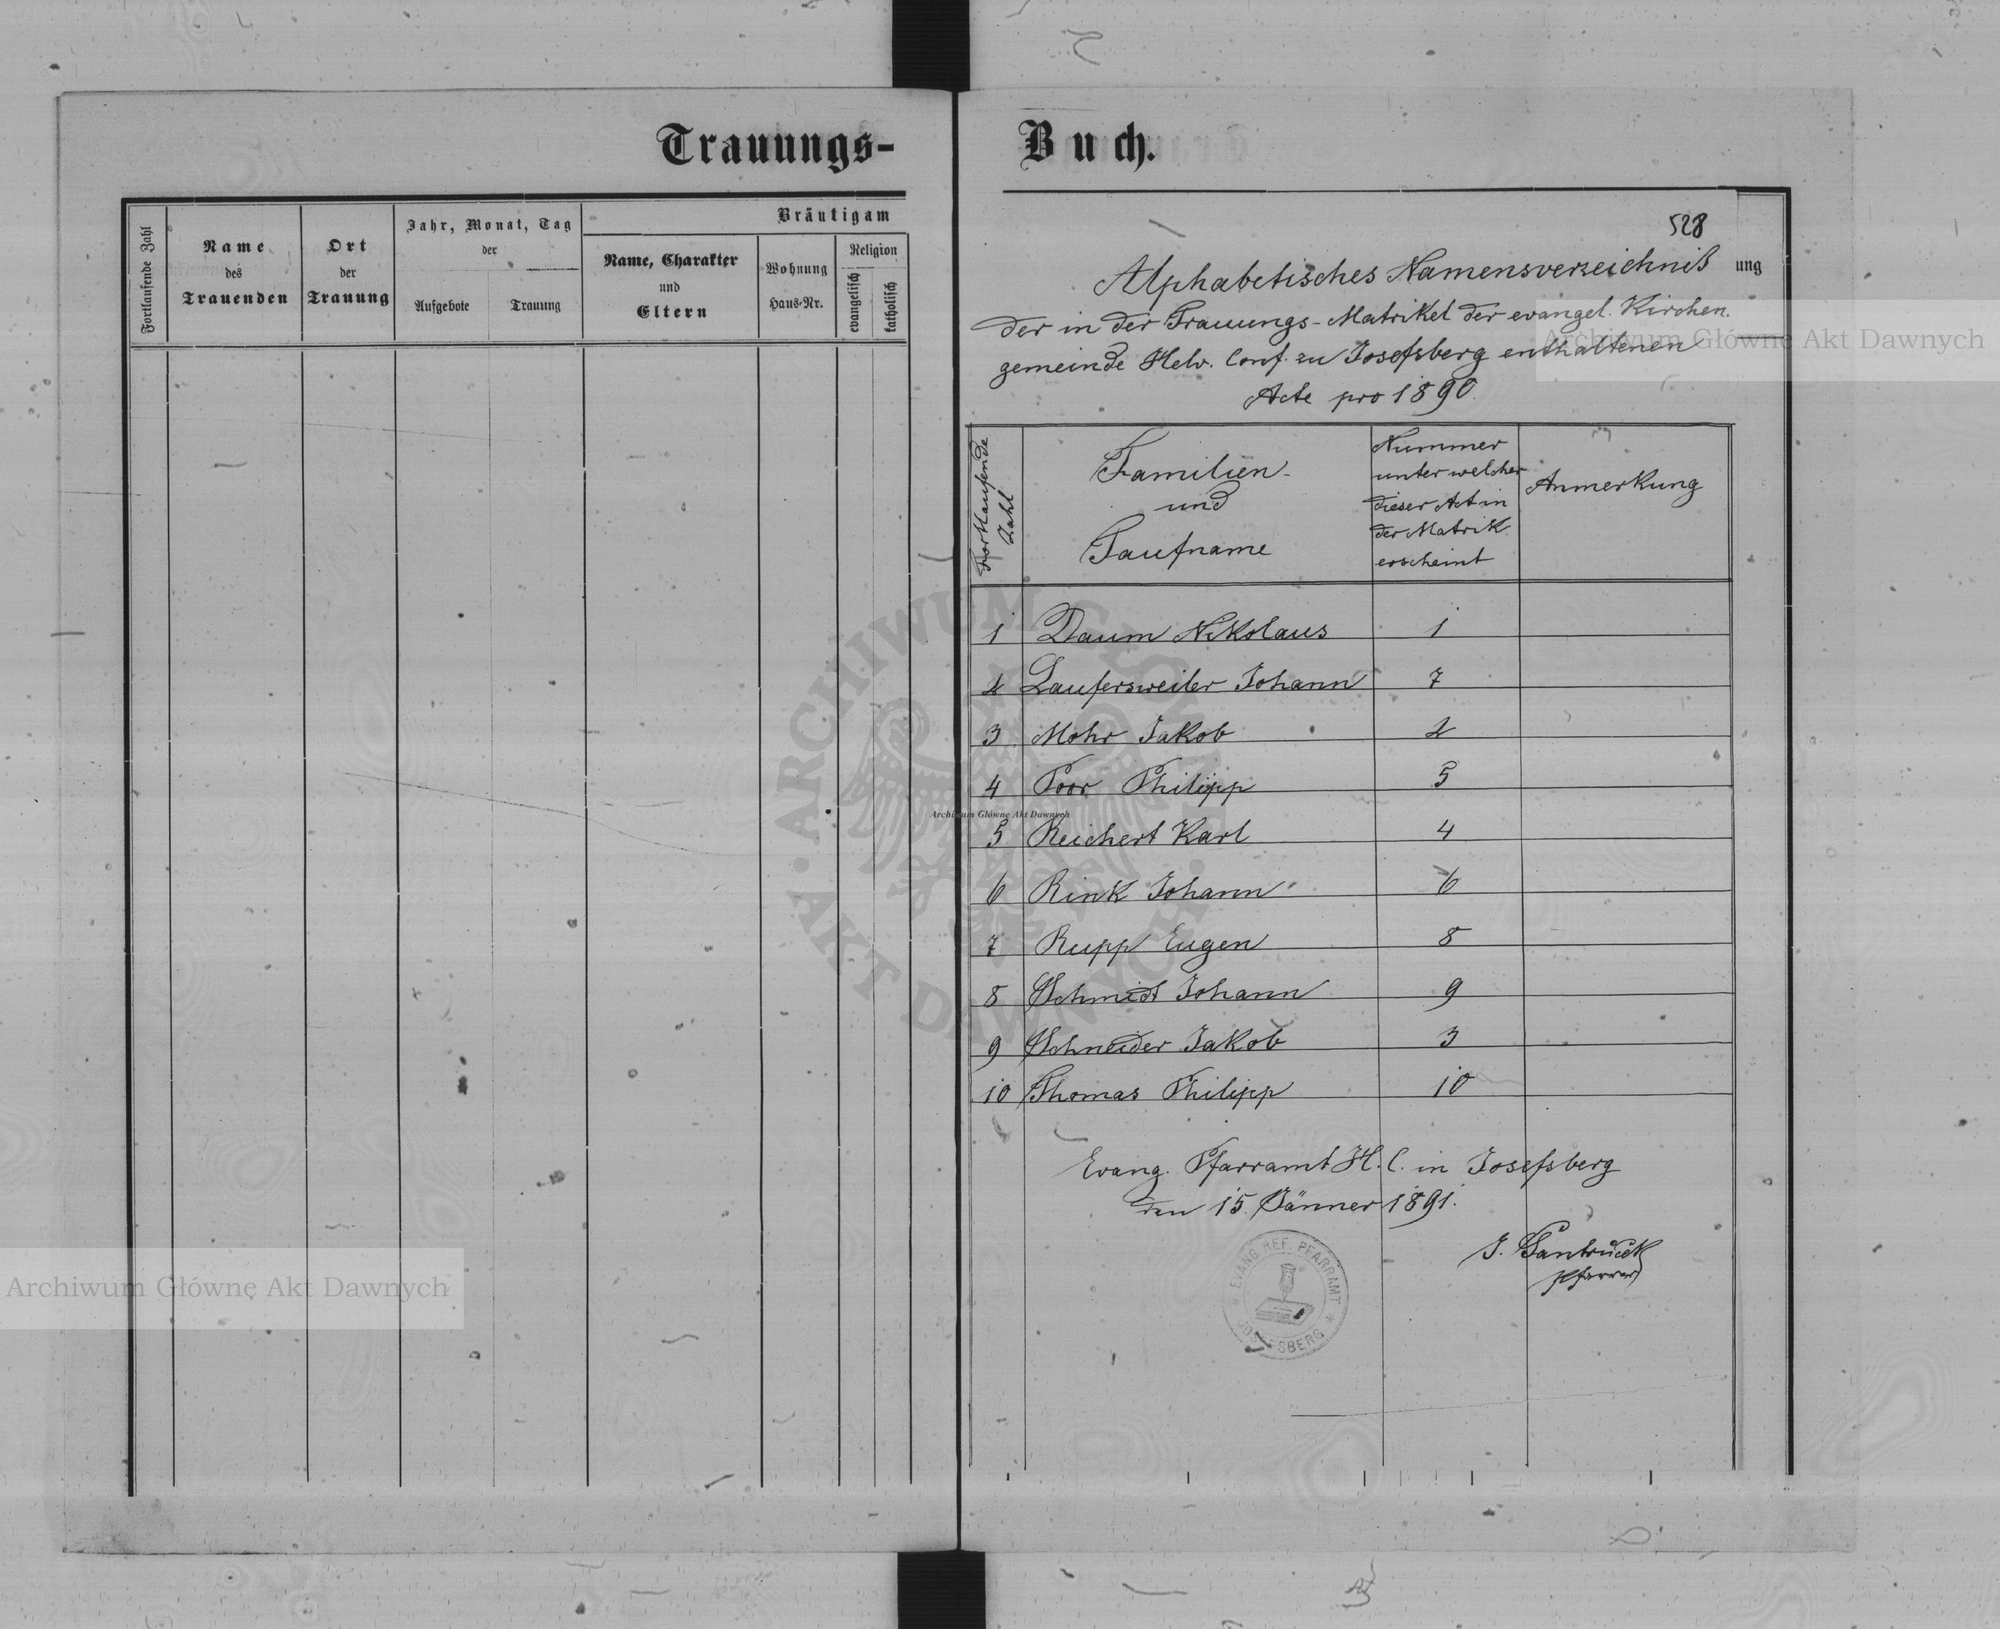 Trauungs-
Fortlaufende Zahl
Name
des
Trauenden
Ort
der
Trauung
Jahr, Monat, Tag
der
Aufgebote
Trauung
Bräutigam
Name, Charakter
und
Eltern
Wohnung
Haus-Nr.
Religion
evangelisch
katholisch
Buch.
ung
528
Alphabetisches Namensverzeichniß
der in der Trauungs-Matrikel der evangel. Kirchen.
gemeinde Helv. Conf. zu Josefsberg enthaltenen
Acte pro 1890.
Fortlaufende
Zahl
Familien-
und
Taufname
Nummer
unter welcher
dieser Act in
der Matrik
erscheint
Anmerkung
1 Daum Nikolaus 1
2 Laufersweiler Johann 7
3 Mohr Jakob 2
4 Poor Philipp 5
5 Reichert Karl 4
6 Rink Johann 6
7 Rupp Eugen 8
8 Schmidt Johann 9
9 Schneider Jakob 3
10 Thomas Philipp 10
Evang. Pfarramt H. C. in Josefsberg
den 15. Jänner 1891.
J.
Pfarrer
EVANG. REF. PFARRAMT
JOSEFSBERG
Archiwum Główne Akt Dawnych
Archiwum Główne Akt Dawnych
Archiwum Główne Akt Dawnych
ARCHIWUM GŁÓWNE
AKT DAWNYCH